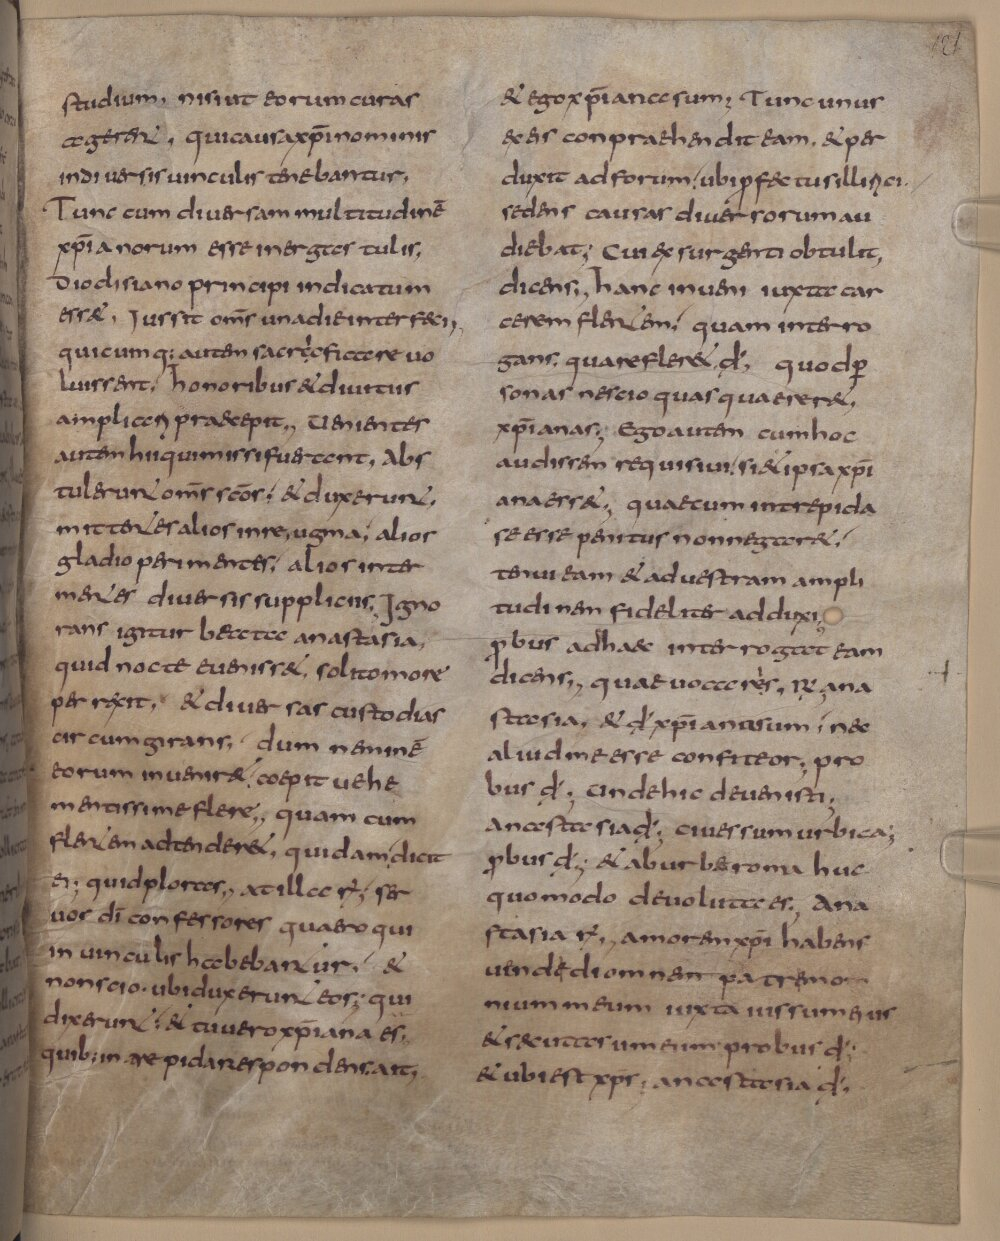 121
studium, nisi ut eorum curas
ageret, qui causa xp̄i nominis
in diversis vinculis tenebantur.
Tunc cum diversam multitudinē
xp̄ianorum esse in ergastulis,
Diodisiano principi indicatum
esset, Iussit om̄s una die interfeci,
quicumq; autem sacrificare vo
luissent, honoribus & divitiis
amplicari praecepit, Venientes
autem hii qui missi fuerant, Abs
tulerunt om̄s scōs; & duxerunt,
mittentes alios in reugma, alios
gladio perimentes, alios inter
mentes diversis suppliciis; Igno
rans igitur beata anastasia,
quid nocte evenisset, solito more
perrexit, & diversas custodias
circumgirans, dum neminē
eorum inveniret, coepit vehe
mentissime flere, quam cum
flentem adtenderet, quidam dicit
ei; quid ploras, at illa r̄; ser
vos dī confessores quaero qui
in vinculis habebantur, &
nonscio ubi duxerunt eos; qui
dixerunt, & tu vero xp̄iana es,
quib; intrepida respondens, ait,
& ego xp̄iana sum; Tunc unus
ex eis conpraehendit eam, & per
duxit ad forum, ubi p̄fectus illirici
sedens causas diversorum au
diebat; Cui exsurgenti obtulit,
dicens, hanc inveni iuxta car
cerem flentem, quam interro
gans, quare fleret, d̄, quod p̄
sonas nescio quas quaereret,
xp̄ianas; Ego autem cum hoc
audissem requisivi, si & ipsa xp̄i
ana esset, quae cum intrepida
se esse penitus non negaret,
tenui eam & ad vestram ampli
tudinem fideliter adduxi;
p̄bus ad haec interrogat eam
dicens, quae vocaris, R̄, ana
stasia, & d̄ xp̄iana sum, nec
aliud me esse confiteor, pro
bus d̄; Unde hic devenisti,
Anastasia d̄; cives sum urbica;
p̄bus d̄; & ab urbe roma huc
quomodo devoluta es, Ana
stasia r̄, amorem xp̄i habens
vendedi omnem patremo
nium meum iuxta iussum eius
& secuta sum eum, probus d̄;
& ubi est xp̄s; anastasia d̄,